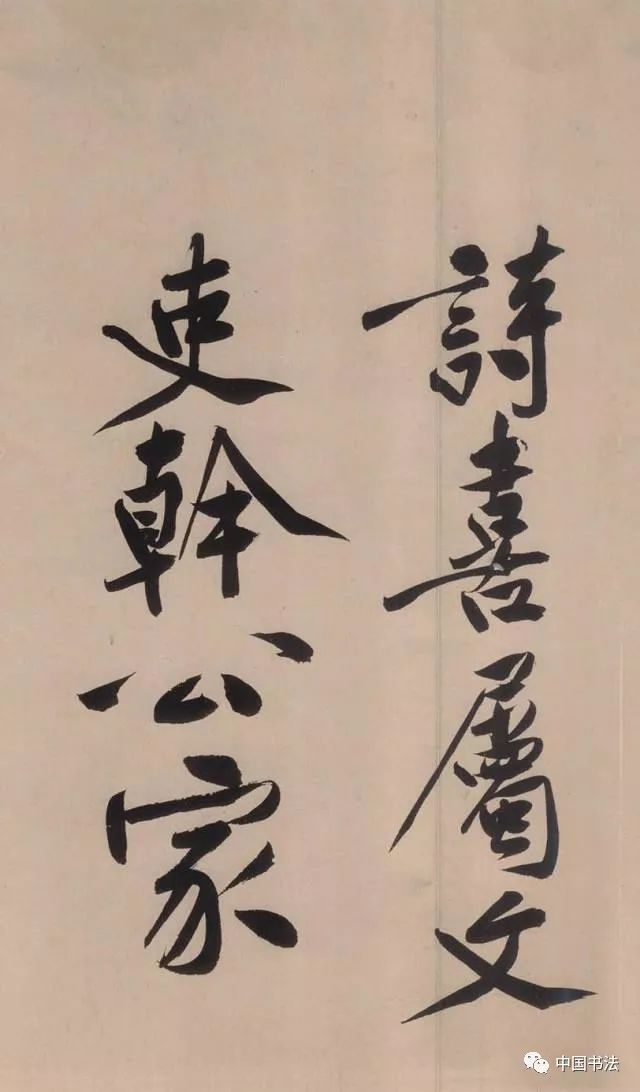 詩書屬文
吏幹公家
中国书法